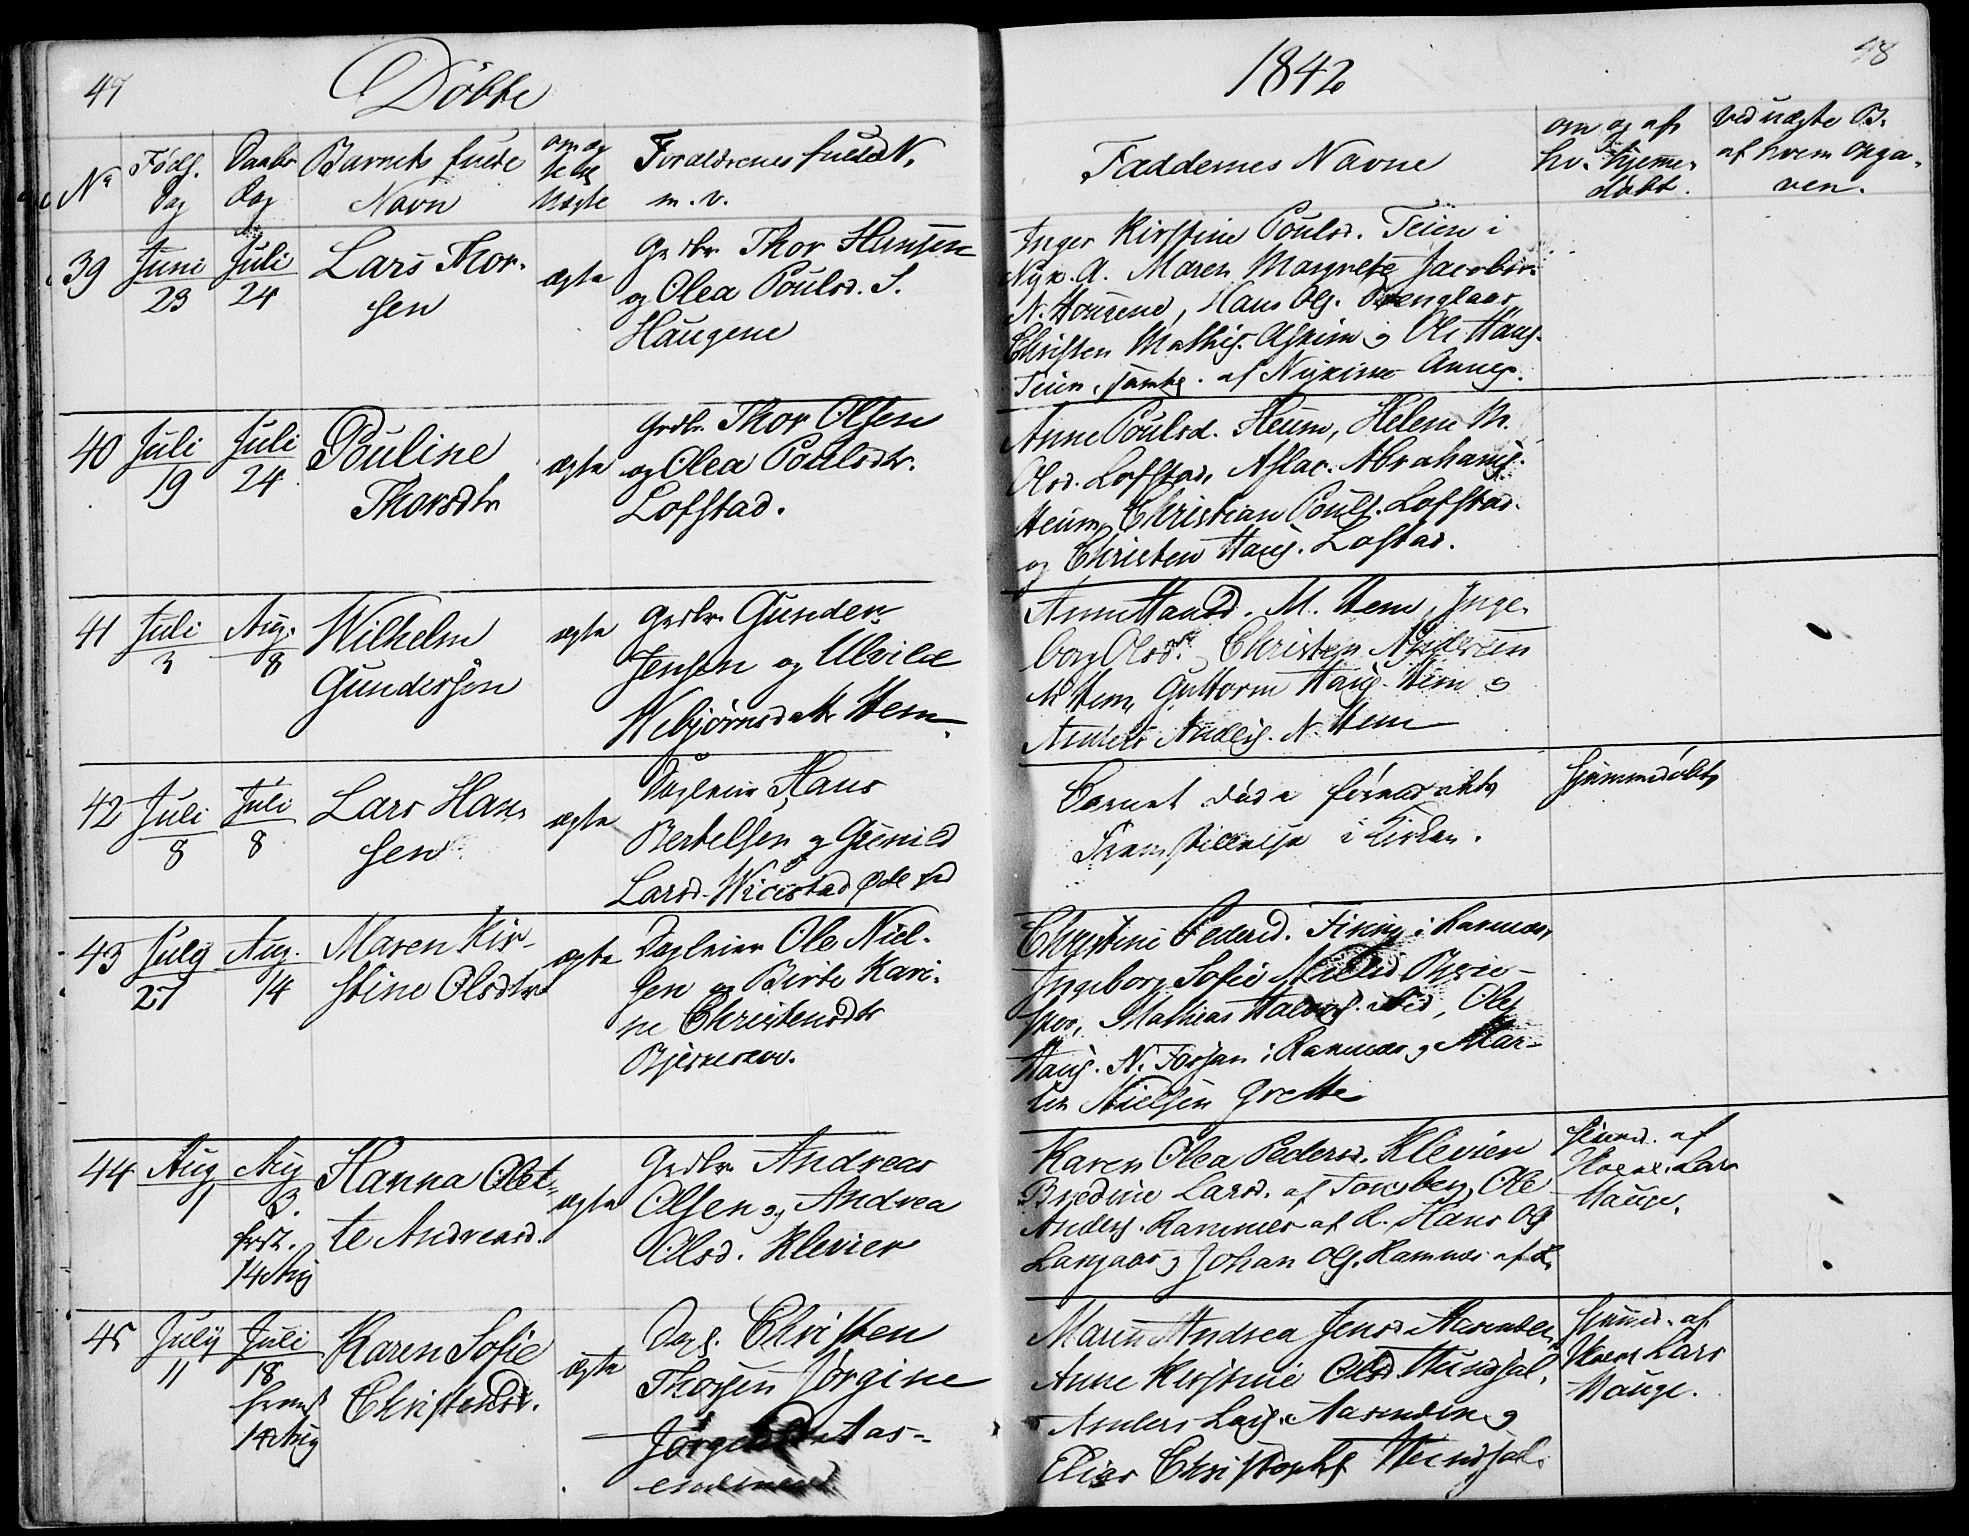 47
Döbte
1842
48
No
Föds.
Dag
Daabs
Dag
Barnets fulde
Navn
om æg
te el.
uægte
Forældrenes fulde N.
m. v.
Faddernes Navne
om og af
hv. hjemme-
döbt.
ved uægte B.
af hvem opga-
ven.
39
Juni
23
Juli
24
Lars Thor-
sen
ægte
Grdbr Thor Hansen
og Olea Poulsd. S.
Haugene
Inger Kirstine Poulsd. Teien i
Nyk. A. Maren Margrete Jacobs
N. Hougene, Hans Ols.
Christen Mathis. Askim og Ole Hans.
Teien, samtl. af Nykirke Annex.
40
Juli
19
Juli
24
Pouline
Thorsdtr
ægte
Grdbr. Thor Olsen
og Olea Poulsdtr.
Lofstad.
Anne Poulsd. Heum, Helene M.
Olsd. Lofstad, Aslac. Abrahams.
Heum, Christian Pouls. Lofstad.
og Christen Hans. Lofstad.
41
Juli
3
Aug.
8
Wilhelm
Gundersen
ægte
Grdbr. Gunder
Jensen og Ulvilde
Webjörnsdatr Hem
Anne Hansd. M. Hem, Inge-
borg Olsd. Christen Andersen
M Hem, Guttorm Hans. Hem og
Anders Anders. N. Hem
42
Juli
8
Juli
8
Lars Han-
sen
ægte
Dagleier Hans
Bertelsen og Gunild
Larsd.
Barnet döde
Fremstillelse i Kirken.
hjemmedöbt
43
July
27
Aug.
14
Maren Kir-
stine Olsdtr
ægte
Dagleier Ole Niel-
sen og Birte Kari-
ne Christensdtr
Christine Pedersd. i Ramnæs,
Ingeborg Sofie
Mathias
Hans. N. i Ramnæs og Mar-
tin Nielsen Grette
44
Aug
1
Aug
3.
frst.
14 Aug
Hanna Olet-
te Andreasd.
ægte
Grdbr. Andreas
Olsen og Andrea
Olsd. Klevier
Karen Olea Pedersd. Klevien
Bredine Larsd. af Tonsberg, Ole
Anders. Ramnæs af R. Hans Ols
Langaar og Johan Ols. Ramnæs af R.
hjemd. af
Skoel. Lars
Hauge.
45
July
11
Juli
18
fremst
14 Aug
Karen Sofie
Christensd.
ægte
Dagl. Christen
Thorsen Jörgine
Maren Andrea Jensd.
Anne Kirstine Olsd.
Anders Lars.
Elias Christophs
hjemd. af
Skoel Lars
Hauge.